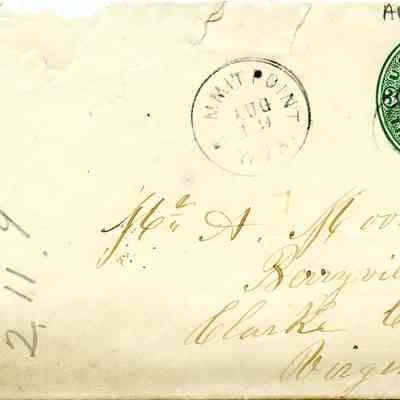 MMIT POINT
AUG
19
W.VA.
Mr. A. Moo
Berryvil
Clarke C
Virgin
2.11.9